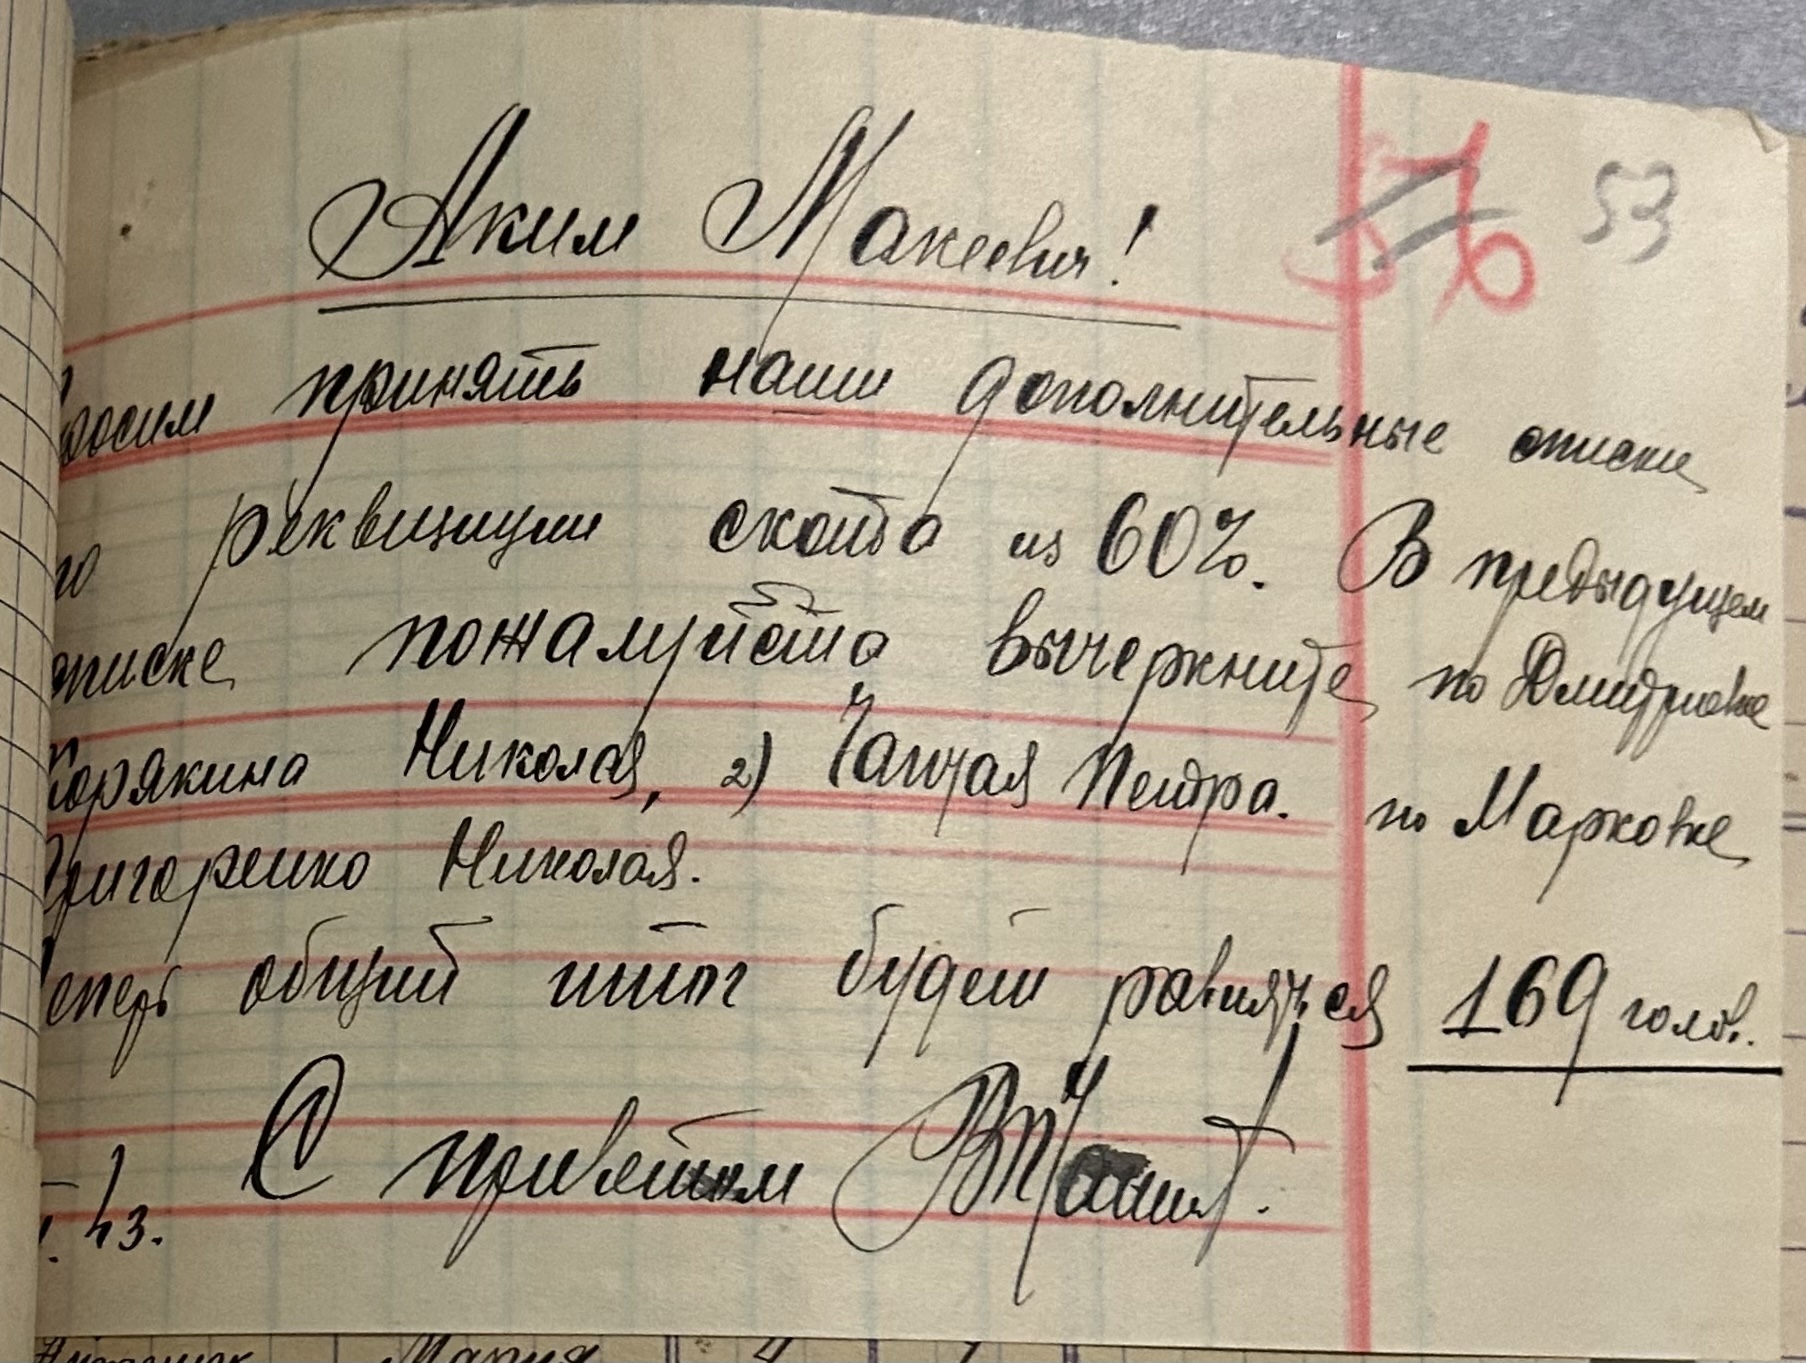 56 53
Аким Макеевич!
Просим принять наши дополнительные списки
по реквизиции скота из 60%. В предыдущем
списке пожалуйста вычеркните по Дмитровке
Корякина Николая, 2) Чапчая Петра. по Марковке
Григоренко Николая.
Теперь общий итог будет равняться 169 голов.
С приветом
43.
Мария